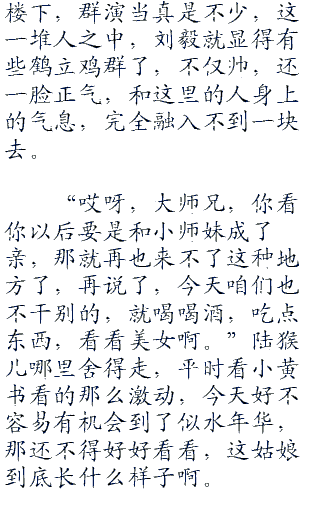 楼下，群演当真是不少，这
一堆人之中，刘毅就显得有
些鹤立鸡群了，不仅帅，还
一脸正气，和这里的人身上
的气息，完全融入不到一块
去。
“哎呀，大师兄，你看
你以后要是和小师妹成了
亲，那就再也来不了这种地
方了，再说了，今天咱们也
不干别的，就喝喝酒，吃点
东西，看看美女啊。”陆猴
儿哪里舍得走，平时看小黄
书看的那么激动，今天好不
容易有机会到了似水年华，
那还不得好好看看，这姑娘
到底长什么样子啊。